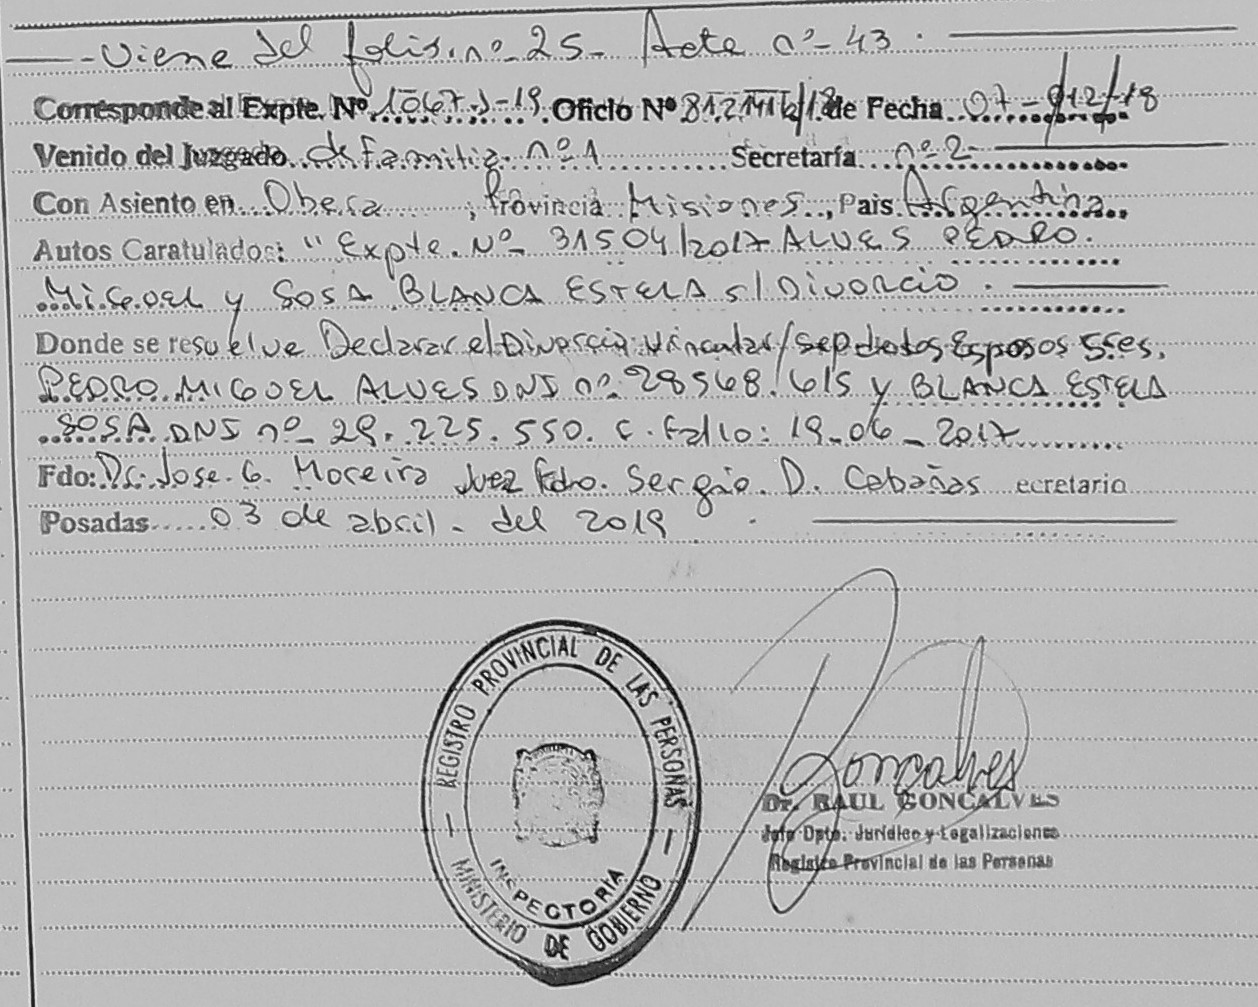 Viene del folio. nº 25 - Acta nº - 43.
Corresponde al Expte. Nº 1067-J-19 Oficio Nº de Fecha 07-12/18
Venido del Juzgado de Familia nº 1 Secretaría nº 2
Con Asiento en Obera, Provincia Misiones, Pais Argentina,
Autos Caratulados: "Expte. Nº 31504/2017 ALVES PEDRO
MIGUEL y SOSA BLANCA ESTELA s/ DIVORCIO.
Donde se resuelve Declarar el Divorcio Vincular / Esposos Sres.
PEDRO MIGUEL ALVES DNI nº 28568.615 y BLANCA ESTELA
SOSA DNI nº 29.225.550. Fallo: 19-06-2017
Fdo: Dr. Jose. G. Moreira Juez Fdo. Sergio. D. Cabañas ecretario
Posadas 03 de abril - del 2019.
REGISTRO PROVINCIAL DE LAS PERSONAS
INSPECTORIA
MINISTERIO DE GOBIERNO
Goncalves
Dr. RAUL GONCALVES
Jefe Dpto. Jurídico y Legalizaciones
Registro Provincial de las Personas